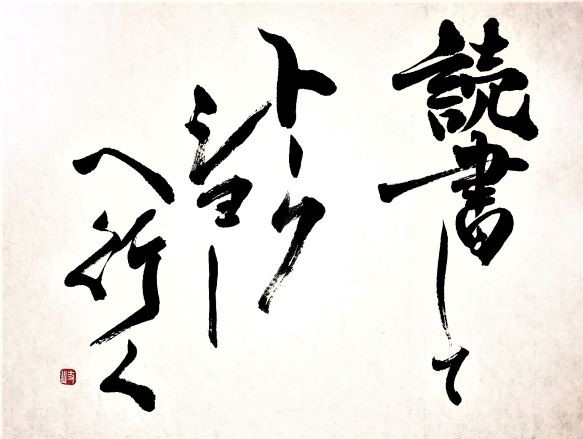 読書して
トーク
ショー
へ行く